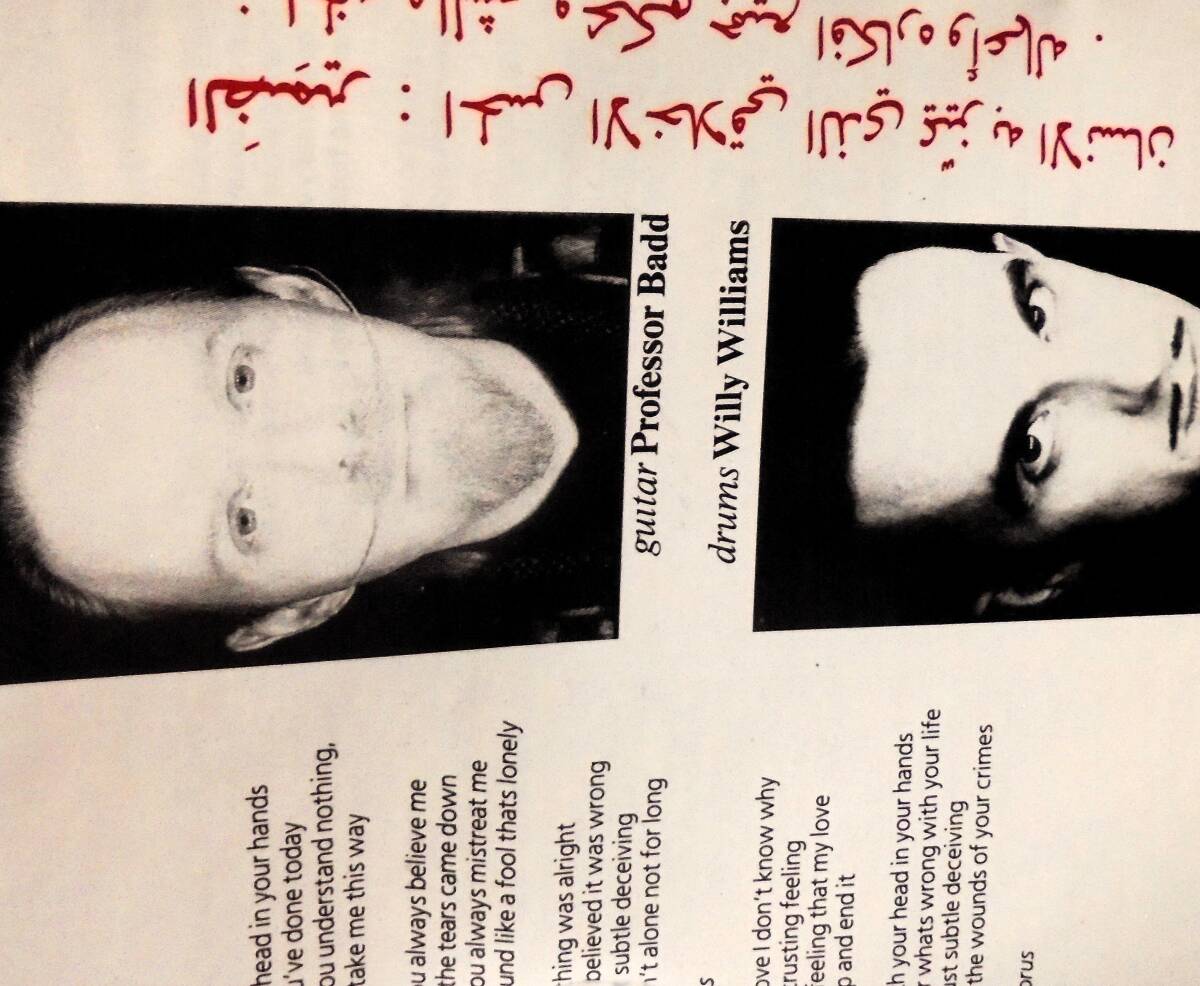 الضَمير : الحس الاخلاقي الذي يميّز به الانسان
جميع افكاره وأعماله .
guitar Professor Badd
drums Willy Williams
head in your hands
've done today
understand nothing,
take me this way
always believe me
the tears came down
always mistreat me
like a fool thats lonely
was alright
believed it was wrong
subtle deceiving
alone not for long
I don't know why
feeling
feeling that my love
and end it
your head in your hands
whats wrong with your life
subtle deceiving
the wounds of your crimes